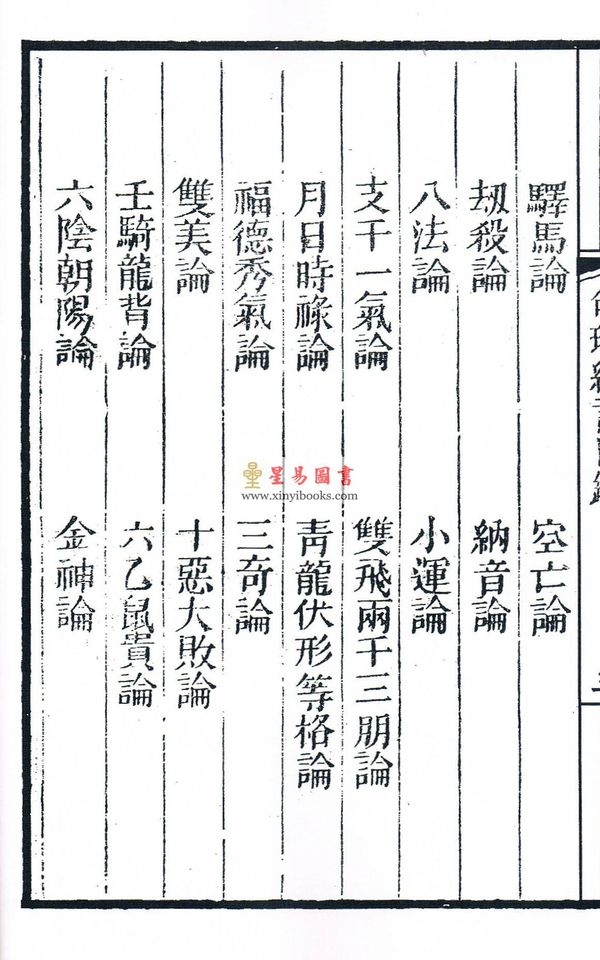 驛馬論 空亡論
刼殺論 納音論
八法論 小運論
支干一氣論 雙飛兩干三朋論
月日時祿論 青龍伏形等格論
福德秀氣論 三奇論
雙美論 十惡大敗論
壬騎龍背論 六乙鼠貴論
六陰朝陽論 金神論
星易圖書
www.xinyibooks.com